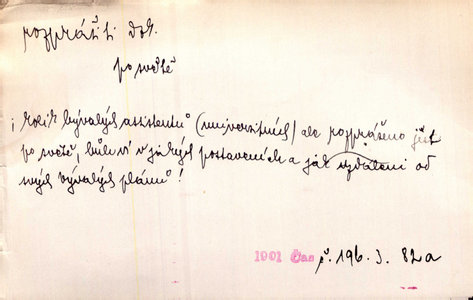 rozprášiti dok.
po světě
i kolik bývalých assistentů (universitních) ale rozprášeno jest
po světě, bůh ví v jakých postaveních a jak vzdáleni od
svých bývalých plánů!
1901 Čas č. 196. s. 82a